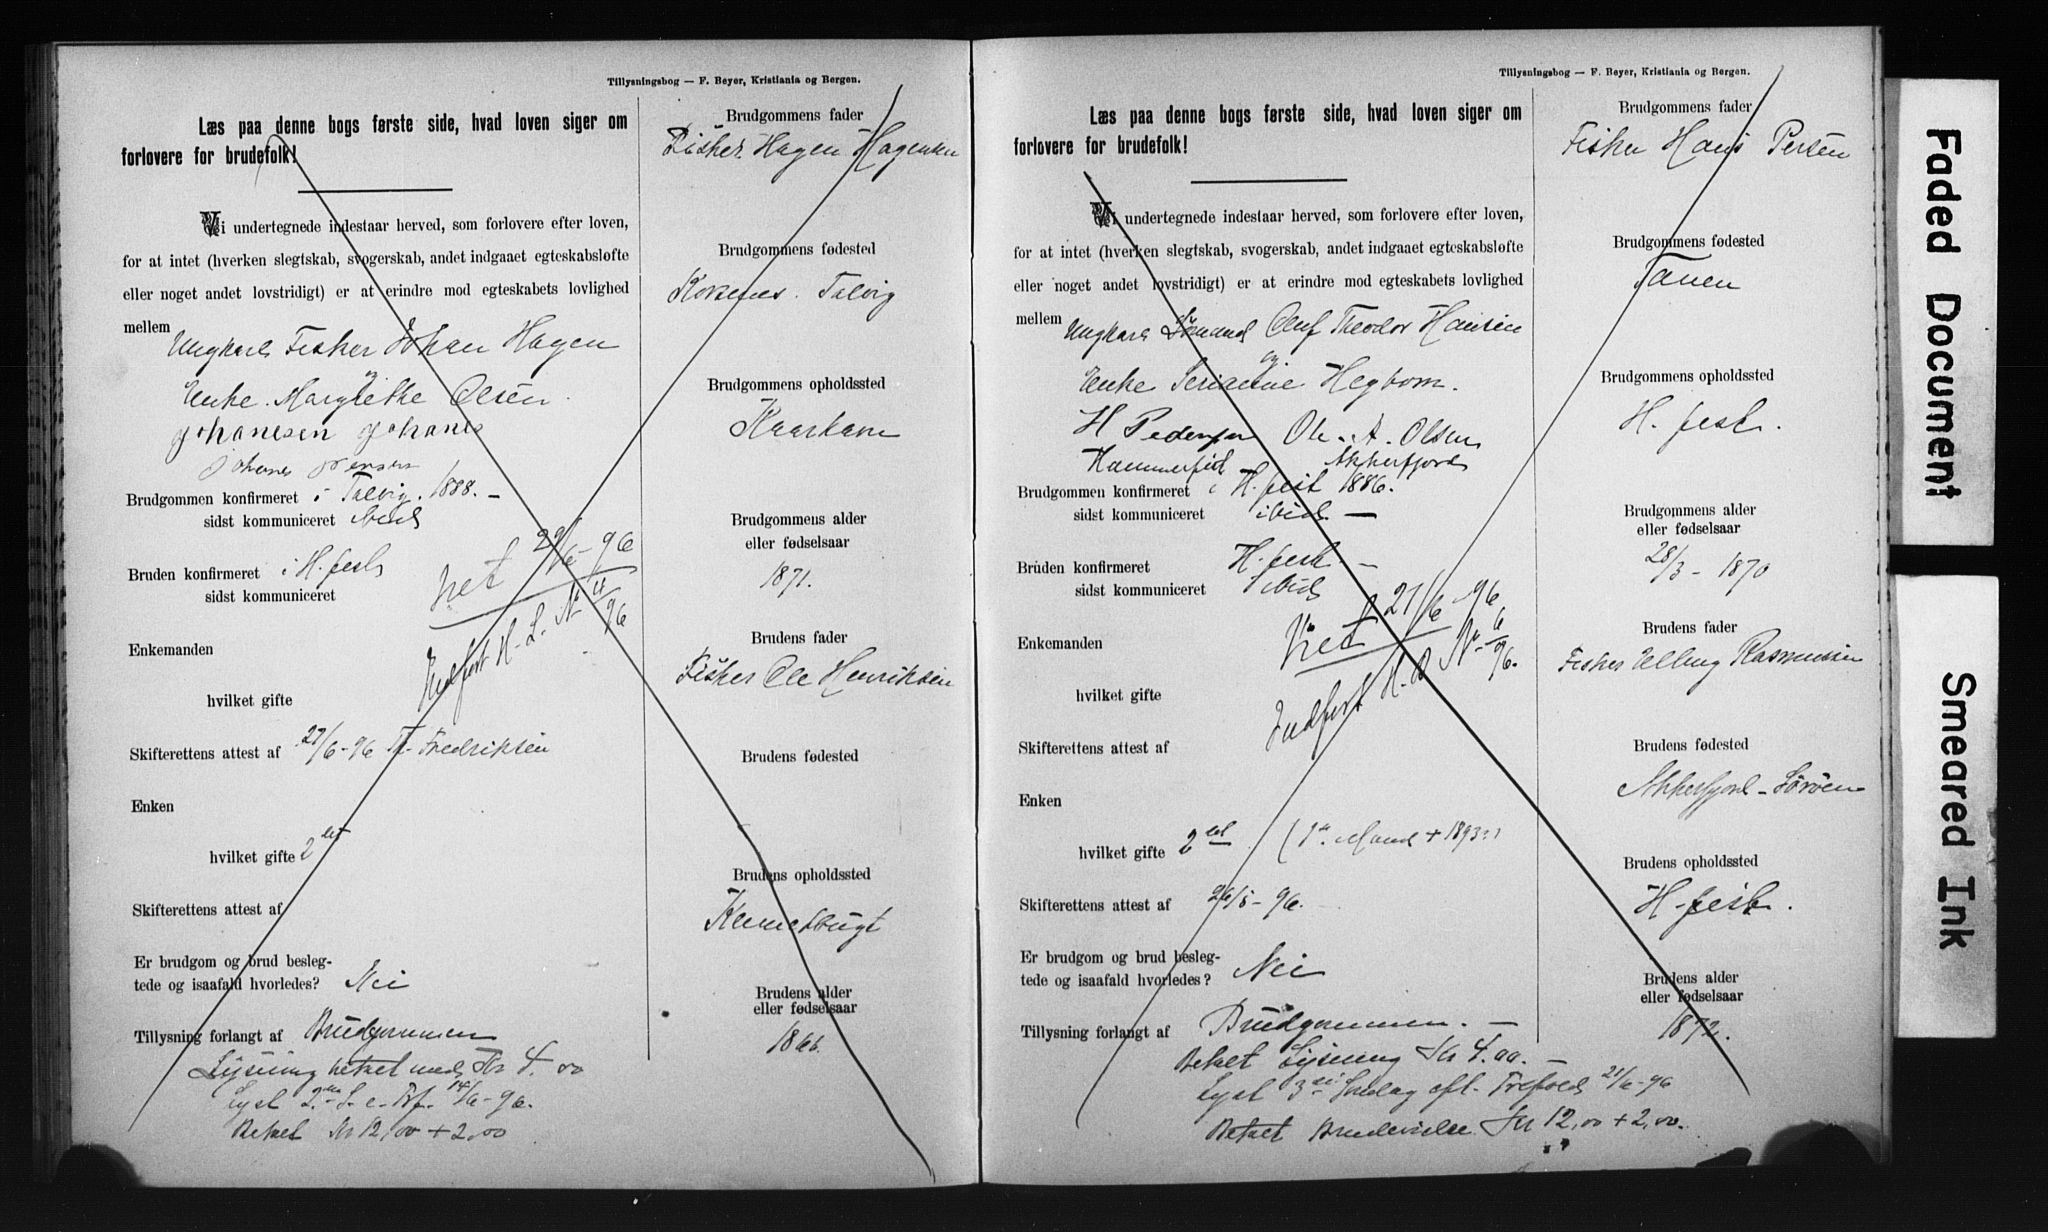 Tillysningsbog — F. Beyer, Kristiania og Bergen.
Læs paa denne bogs første side, hvad loven siger om
forlovere for brudefolk!
Vi undertegnede indestaar herved, som forlovere efter loven,
for at intet (hverken slegtskab, svogerskab, andet indgaaet egteskabsløfte
eller noget andet lovstridigt) er at erindre mod egteskabets lovlighed
mellem
Ungkarl Fisker Johan Hagen
og
Enke Margrethe Olsen.
Johanesen Johanes
Johanes Jensen
Brudgommen konfirmeret i Talvig. 1888. —
sidst kommuniceret ibid
Bruden konfirmeret i H.fest
sidst kommuniceret
Viet 29/6-96
Indført H. L. N 4/96
Enkemanden
hvilket gifte
Skifterettens attest af 27/6-96 Fredriksen
Enken
hvilket gifte 2det
Skifterettens attest af
Er brudgom og brud besleg-
tede og isaafald hvorledes? Nei
Tillysning forlangt af Brudgommen
Lysning betalt med Kr 4.00
Lyst 2. S. e. Trf. 14/6-96.
Betalt Kr 12,00 + 2,00
Brudgommens fader
Fisker Hagen Hagensen
Brudgommens fødested
Talvig
Brudgommens opholdssted
Kaarhavn
Brudgommens alder
eller fødselsaar
1871.
Brudens fader
Fisker Ole Henriksen
Brudens fødested
Brudens opholdssted
Brudens alder
eller fødselsaar
1866.
Tillysningsbog — F. Beyer, Kristiania og Bergen.
Læs paa denne bogs første side, hvad loven siger om
forlovere for brudefolk!
Vi undertegnede indestaar herved, som forlovere efter loven,
for at intet (hverken slegtskab, svogerskab, andet indgaaet egteskabsløfte
eller noget andet lovstridigt) er at erindre mod egteskabets lovlighed
mellem
Ungkarl Sømand Oluf Theodor Hansen
og
Enke Serianne Hegbom.
H Pedersen Ole A. Olsen
Hammerfest Akkerfjord
Brudgommen konfirmeret i H.fest 1886.
sidst kommuniceret ibid. —
Bruden konfirmeret H.fest —
sidst kommuniceret ibid
Viet 21/6-96
Indført H. N. 6/96.
Enkemanden
hvilket gifte
Skifterettens attest af
Enken
hvilket gifte 2det (1ste Mand + 1893)
Skifterettens attest af 26/5-96.
Er brudgom og brud besleg-
tede og isaafald hvorledes? Nei
Tillysning forlangt af Brudgommen. —
Betalt Lysning Kr 4.00. —
Lyst 3die Søndag eft. Trefold. 21/6-96
Betalt Brudevielse Kr 12,00 + 2,00.
Brudgommens fader
Fisker Hans Persen
Brudgommens fødested
Tanen
Brudgommens opholdssted
H.fest.
Brudgommens alder
eller fødselsaar
28/3-1870
Brudens fader
Fisker Elling Rasmussen
Brudens fødested
Akkerfjord-Sørøen
Brudens opholdssted
H-fest.
Brudens alder
eller fødselsaar
1872.
Faded Document
Smeared Ink